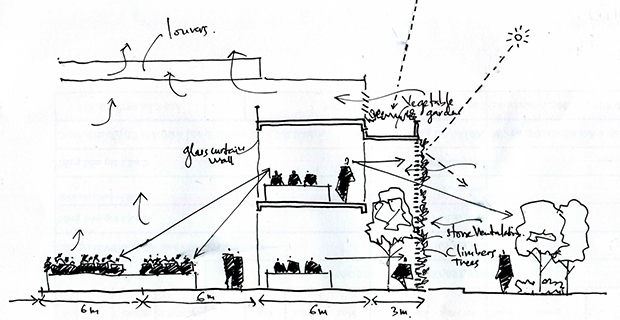 louvers.
vegetable
garden
glass curtain
wall
Stone Ventilation
Climbers
trees
6m
6m
6m
3m.